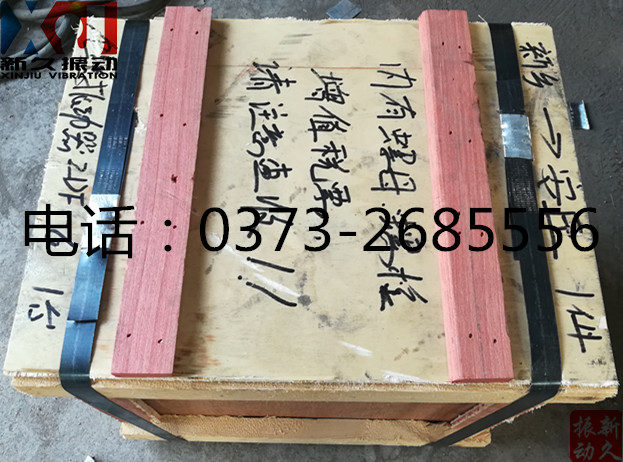 新久振动
XINJIU VIBRATION
新乡→安 1件
内有 螺母 螺栓
增值税票
请注意查收!!
振动器
1台
电话：0373-2685556
新久
振动